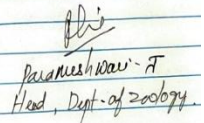 Parameshwari-J
Head, Dept-of zoology.